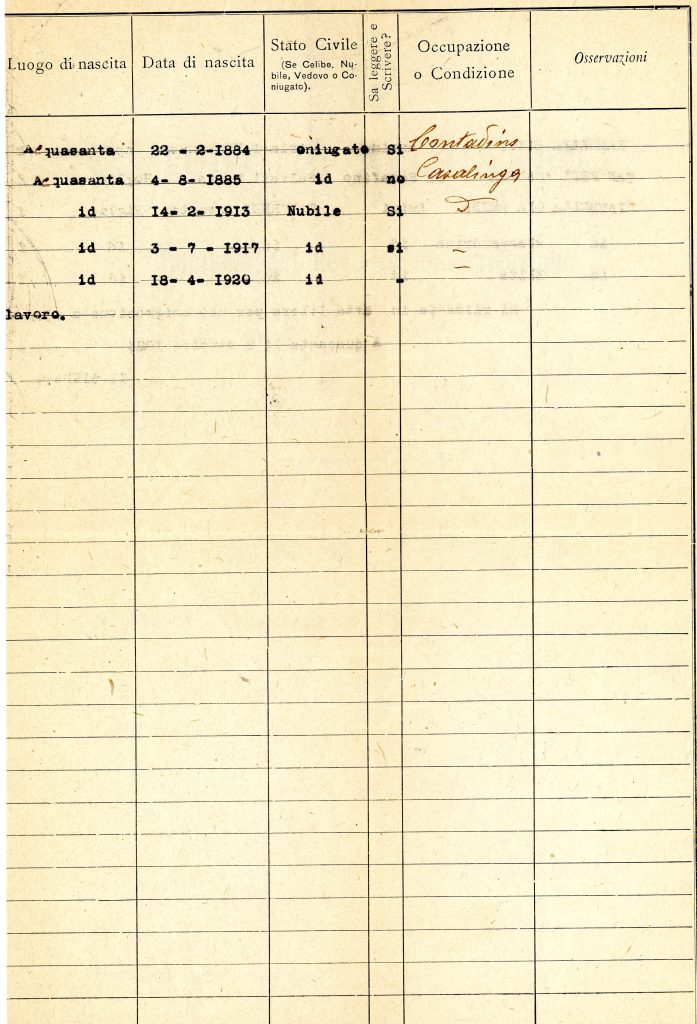 Luogo di nascita Data di nascita Stato Civile (Se Celibe, Nubile, Vedovo o Coniugato). Sa leggere e Scrivere? Occupazione o Condizione Osservazioni
Acquasanta 22 - 2-I884 oniugato Si Contadino
Acquasanta 4- 8- I885 id no Casalinga
id I4- 2- I9I3 Nubile Si
id 3 - 7 - I9I7 id si =
id I8- 4- I920 id -
lavoro.